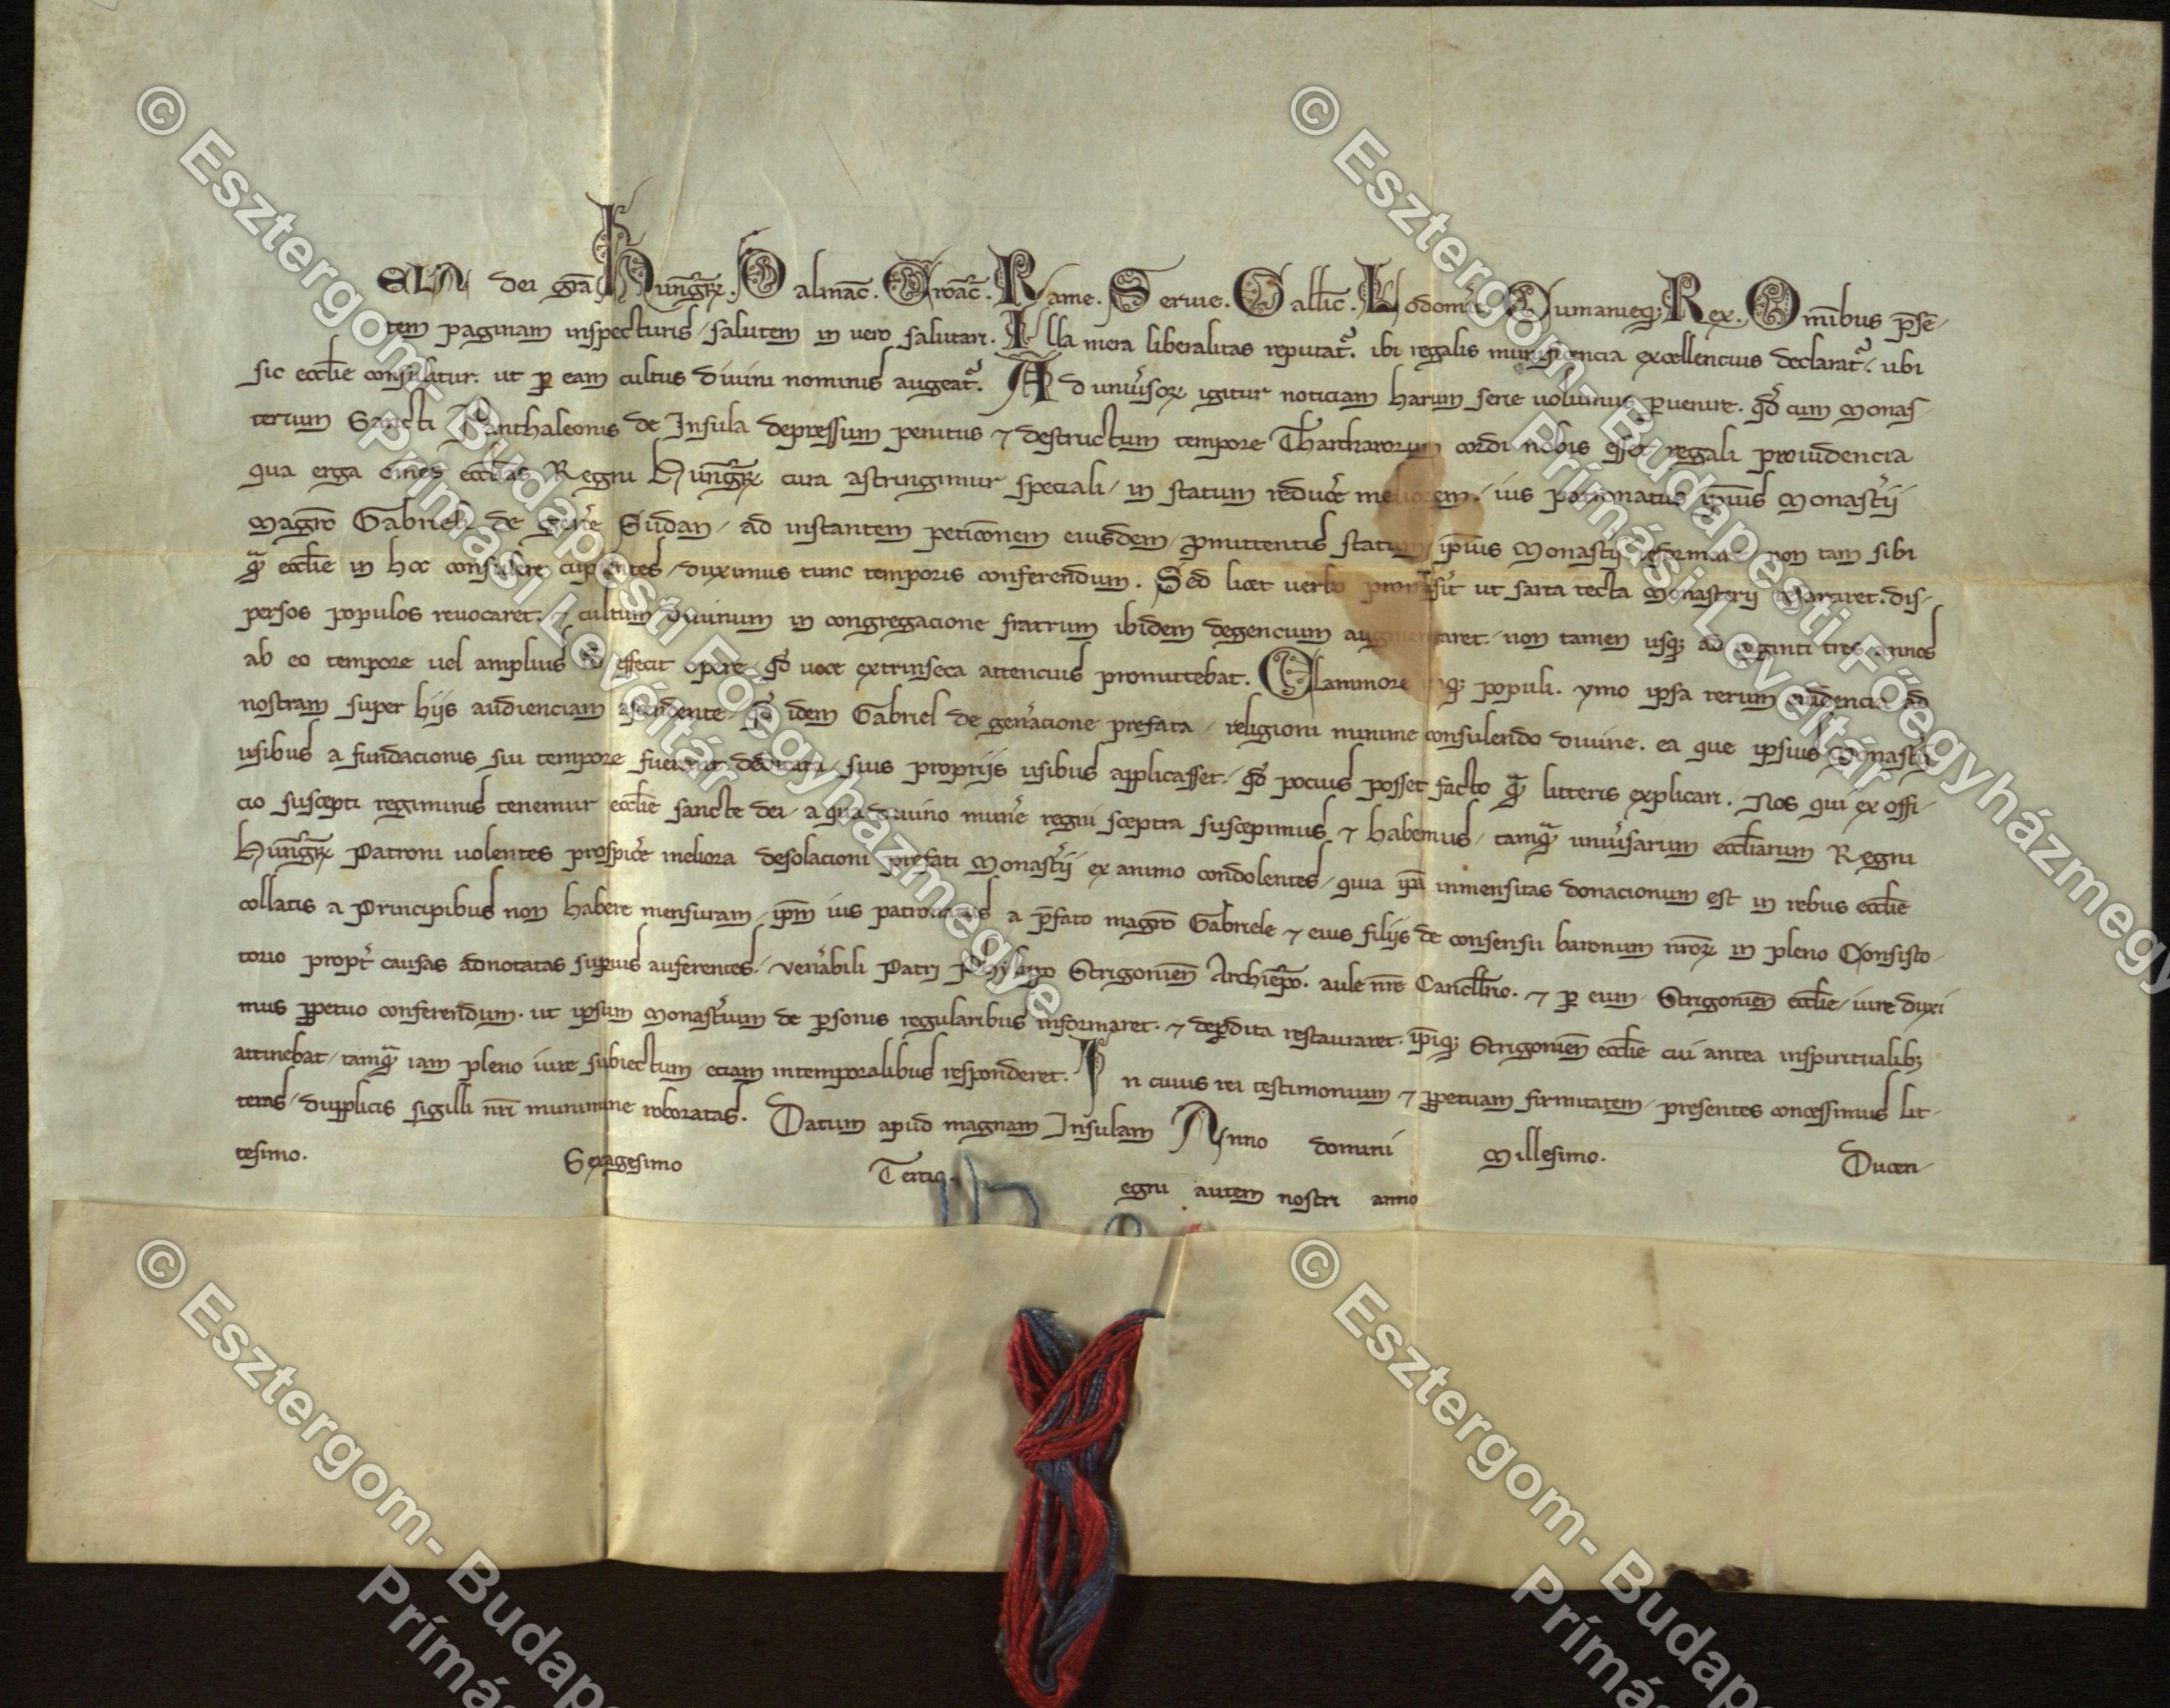 ELA dei gr̄a Hungar̄. Dalmac̄. Croac̄. Rame. Seruie. Gallic̄. Lodomer̄. Cumanieq; Rex. Om̄ibus p̄sen-
tem paginam inspecturis / salutem in uero salutari. Illa mera liberalitas reputat᷑. ibi regalis munificencia excellencius declarat᷑ / ubi
sic eccl̄ie consulitur. ut ꝑ eam cultus diuini nominis augeat᷑. Ad uniu̾soꝝ igitur noticiam harum serie uolumus ꝑuenire. qd̾ cum Monas-
terium Sancti Panthaleonis de Insula depressum penitus ⁊ destructum tempore Thartharorum cordi nobis esset regali prouidencia
qua erga om̄es eccl̄ias Regni Hungar̄ cura astringimur speciali / in statum reduce̾ meliorem / ius patronatus ip̄ius Monast̾ii
magr̄o Gabrieli de gen̾e Sudan / ad instantem petic̄onem eiusdem / ꝓmittentis statum ip̄ius Monast̾ii reformare non tam sibi
qᷓ eccl̄ie in hoc consulere cupientes / duximus tunc temporis conferendum. Sed licet uerbo promis̾it ut sarta tecta Monasterii resarciret. dis-
persos populos reuocaret. ⁊ cultum diuinum in congregacione fratrum ibidem degencium augmentaret / non tamen usq; ad uiginti tres annos
ab eo tempore uel amplius id effecit opere / qd̾ uoce extrinseca attencius promittebat. Clammore itaq; populi. ymo ipsa rerum euidencia ad
nostram super hijs audienciam ascendente / qd̾ idem Gabriel de gen̾acione prefata / religioni minime consulendo diuine. ea que ipsius Monast̾ii
usibus a fundacionis sui tempore fuerant dedicata / suis proprijs usibus applicasset / qd̾ pocius posset facto qᷓ litteris explicari. Nos qui ex offi-
cio suscepti regiminis tenemur eccl̄ie sancte dei / a qua diuino mun̾e regni sceptra suscepimus ⁊ habemus / tamqᷓ uniu̾sarum eccl̄iarum Regni
Hungar̄ Patroni uolentes prospice̾ meliora desolacioni prefati Monast̾ii ex animo condolentes / quia ip̄a inmensitas donacionum est in rebus eccl̄ie
collatis a Principibus non habere mensuram / ip̄m ius patronatus a p̄fato magr̄o Gabriele ⁊ eius filijs de consensu baronum nr̄oꝝ in pleno Consisto-
rio propt̾ causas adnotatas suꝑius auferentes / uen̾abili Patri Phylippo Strigonien̄ Archiep̄o. aule nr̄e Cancell̄rio. ⁊ ꝑ eum / Strigonien̄ eccl̄ie / iure duxi
mus ꝑpetuo conferendum. ut ipsum Monast̾ium de ꝑsonis regularibus informaret. ⁊ deꝑdita restauraret. ip̄iq; Strigonien̄ eccl̄ie cui antea inspiritualib;
attinebat / tamqᷓ iam pleno iure subiectum / eciam intemporalibus responderet. In cuius rei testimonium ⁊ ꝑpetuam firmitatem / presentes concessimus lit-
teras / dupplicis sigilli nr̄i munimine roboratas. Datum apud magnam Insulam Anno domini Millesimo. Ducen-
tesimo. Sexagesimo Tertio. egni autem nostri anno
© Esztergom- Budapesti Főegyházmegye
Prímási Levéltár
© Esztergom- Budapesti Főegyházmegye
Prímási Levéltár
© Esztergom- Budapes
Prímás
© Esztergom- Budapes
Prímás